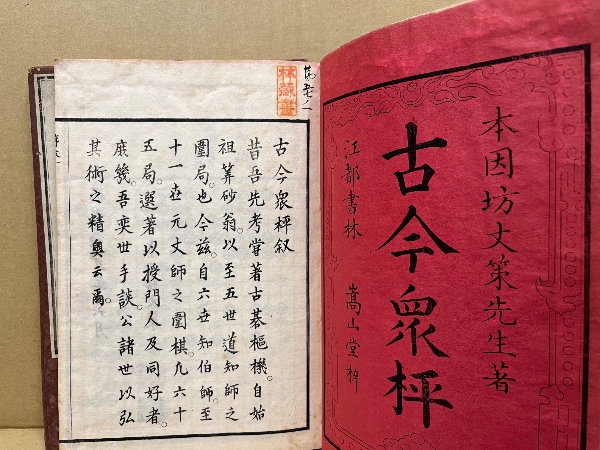 本因坊丈策先生著
古今衆枰
江都書林　嵩山堂梓
古今衆枰叙
昔吾先考嘗著古碁樞機。自始
祖筭砂翁。以至五世道知師之
圍局也。今茲。自六世知伯師。至
十一世元丈師之圍棋。九六十
五局。選著以授門人及同好者。
庶幾吾奕世手談。公諸世以弘
其術之精奥云爾。